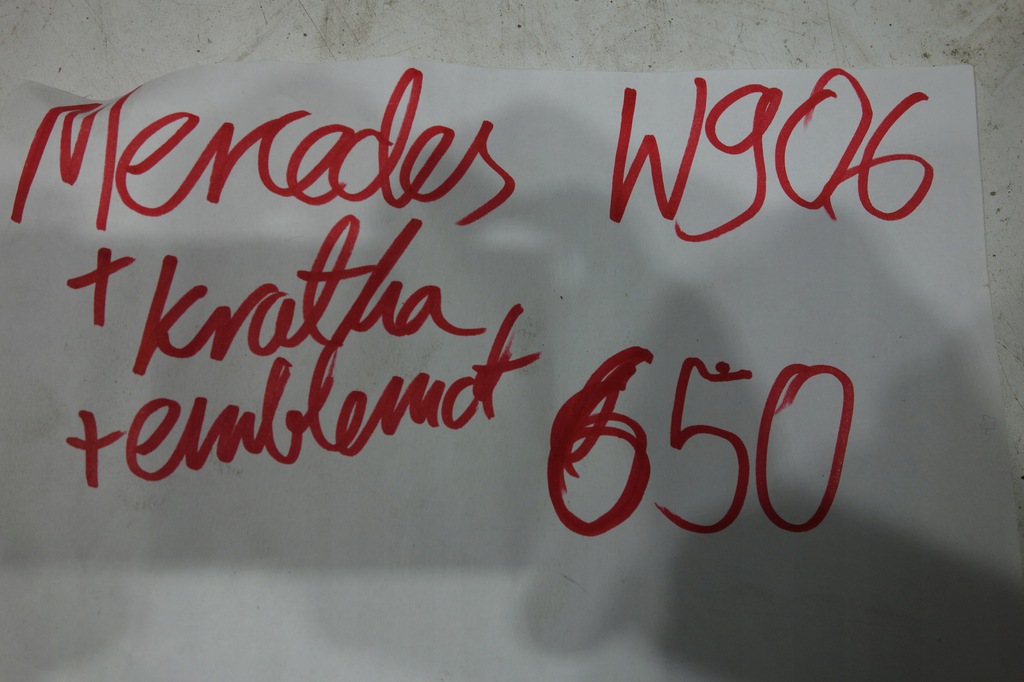 Mercedes W906
+ kratka
+ emblemat 650